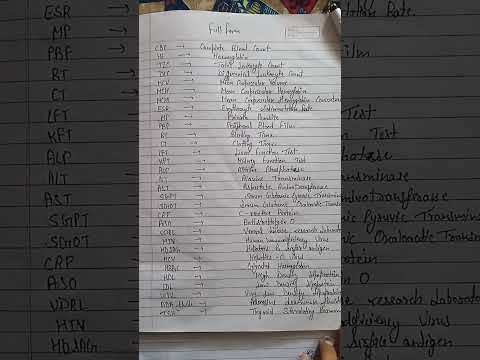 Full Form
CBC → Complete Blood Count
Hb → Haemoglobin
TLC → Total Leukocyte Count
DLC → Differential Leukocyte Count
MCV → Mean Corpuscular Volume
MCH → Mean Corpuscular Hemoglobin
MCHC → Mean Corpuscular Hemoglobin Concentration
ESR → Erythrocyte Sedimentation Rate
MP → Malaria Parasite
PBF → Peripheral Blood Film
BT → Bleeding Time
CT → Clotting Time
LFT → Liver Function Test
KFT → Kidney Function Test
ALP → Alkaline Phosphatase
ALT → Alanine Transaminase
AST → Aspartate Aminotransferase
SGPT → Serum Glutamic Pyruvic Transaminase
SGOT → Serum Glutamic Oxaloacetic Transaminase
CRP → C-reactive Protein
ASO → Antistreptolysin O
VDRL → Venereal disease research Laboratory
HIV → Human immunodeficiency Virus
HBSAG → Hepatitis B surface antigen
HCV → Hepatitis C Virus
→ Hemoglobin
HDL → High Density Lipoprotein
LDL → Low Density Lipoprotein
VLDL → Very Low Density Lipoprotein
TSH → Thyroid Stimulating Hormone
ESR →
MP →
PBF →
RT →
CT →
LFT
KFT
ALP
ALT
AST
SGPT
SGOT
CRP
ASO
VDRL
HIV
HBSAG
Rate
Test
Test
Pyruvic Transamina
Oxaloacetic Transmi
rotein
O
research Laborato
deficiency Virus
surface antigen